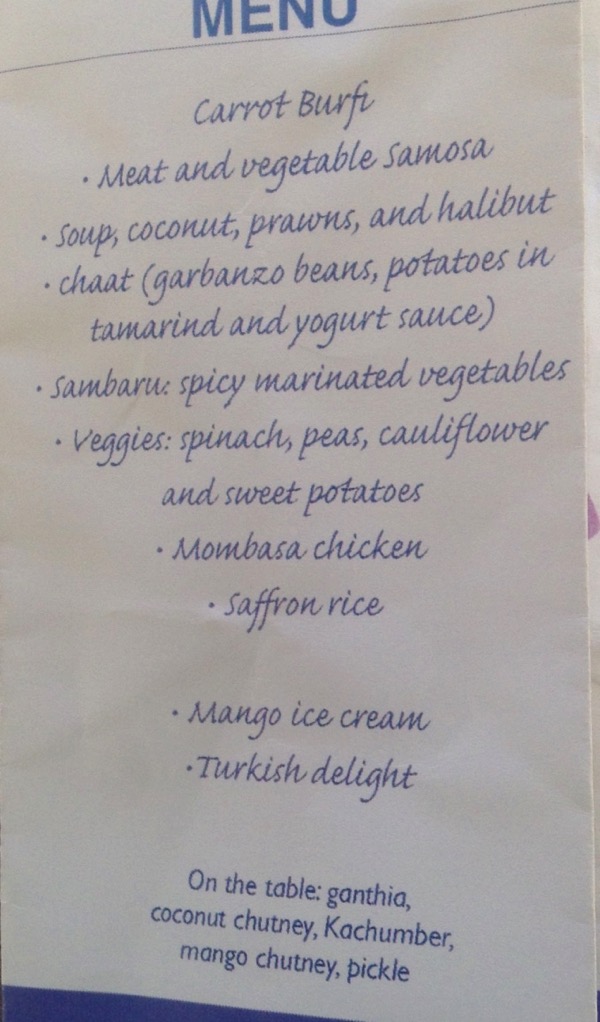 MENU
Carrot Burfi
· Meat and vegetable Samosa
· Soup, coconut, prawns, and halibut
· chaat (garbanzo beans, potatoes in
tamarind and yogurt sauce)
· Sambaru: spicy marinated vegetables
· Veggies: spinach, peas, cauliflower
and sweet potatoes
· Mombasa chicken
· Saffron rice
· Mango ice cream
· Turkish delight
On the table: ganthia,
coconut chutney, Kachumber,
mango chutney, pickle